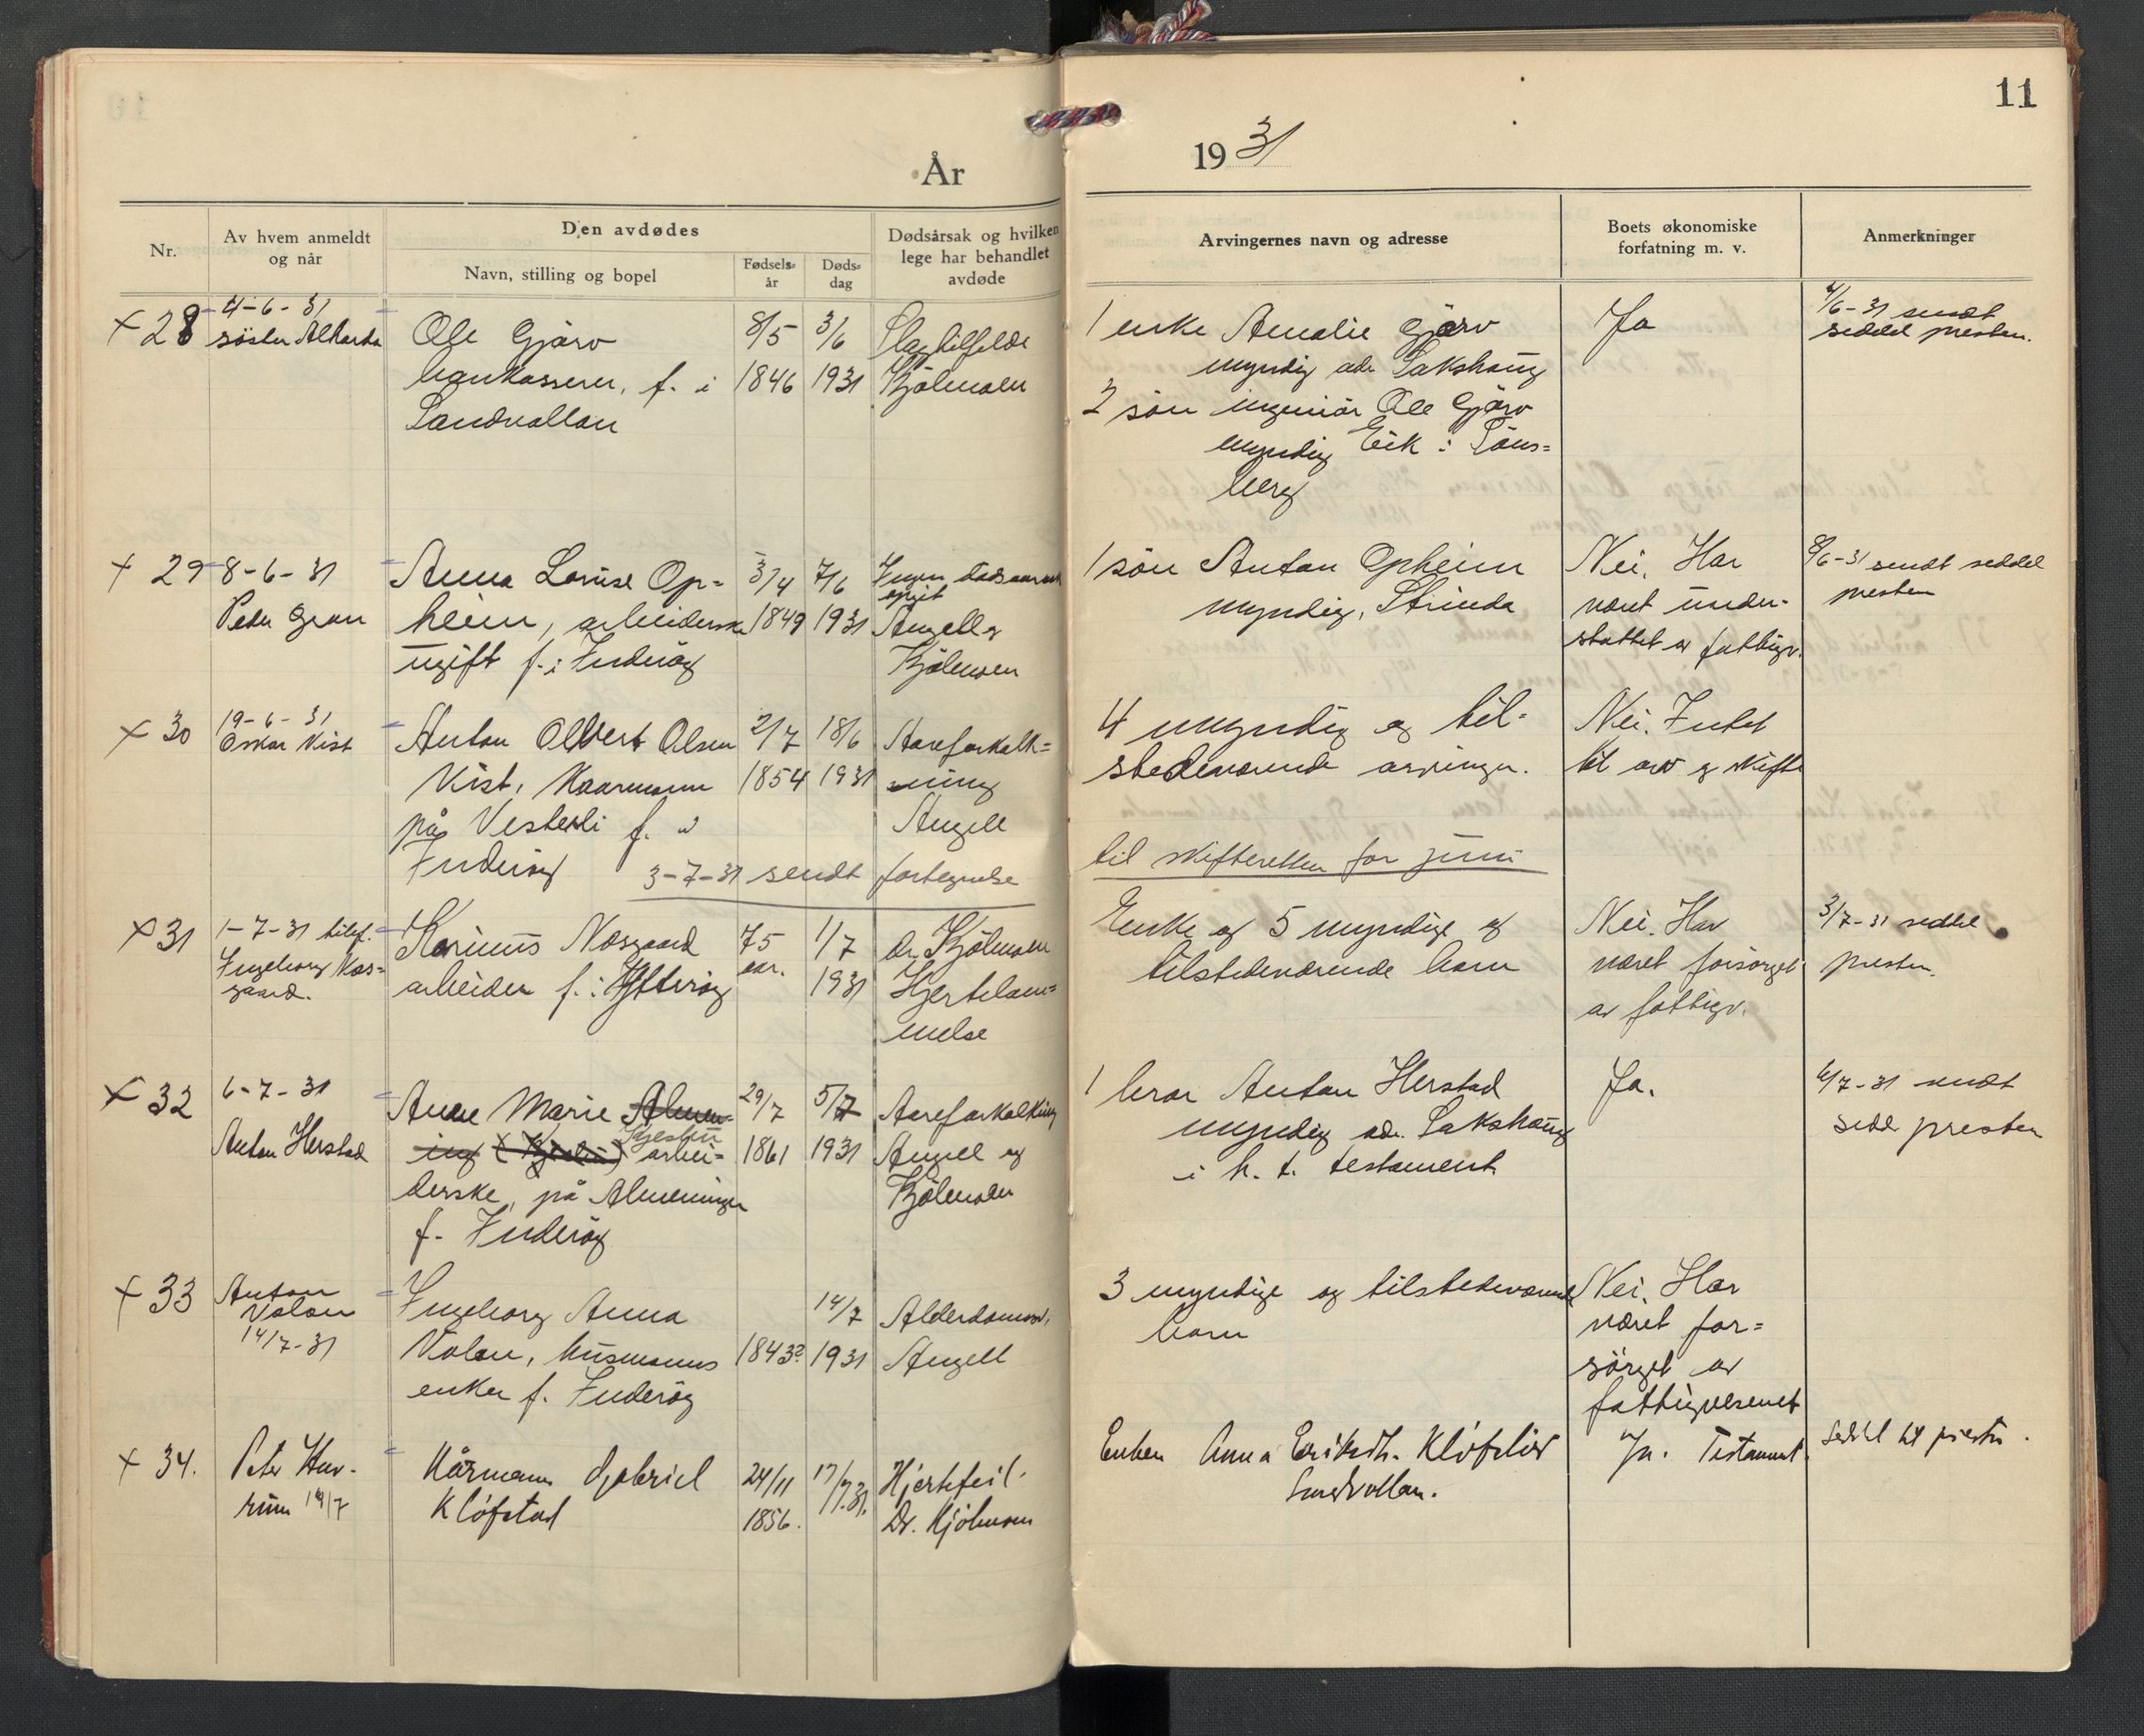 11
År
19 31
Nr.
Av hvem anmeldt
og når
Den avdødes
Navn, stilling og bopel
Fødsels-
år
Døds-
dag
Dødsårsak og hvilken
lege har behandlet
avdøde
Arvingernes navn og adresse
Boets økonomiske
forfatning m. v.
Anmerkninger
× 28
4-6-31
Ole Gjørv
f. i
Sandvollan
8/5
1846
3/6
1931
Kjølmoen
1 enke Amalie Gjørv
myndig adr Sakshaug
2 søn ingeniør Ole Gjørv
myndig Eik i Tøns=
berg
Ja
4/6-31 sendt
seddel presten.
× 29
8-6-31
Peder Gran
Anna Lovise Op=
heim, arbeiderske
ugift f. i Inderøy
3/4
1849
7/6
1931
Ingen dødsaarsak
opgit
Angell og
Kjølmoen
1 søn Anton Opheim
myndig, Strinda
Nei. Har
været under-
støttet av fattigv.
8/6-31 sendt seddel
presten
× 30
19-6-31
Oskar Vist
Anton Olbert Olsen
Vist, Kaarmann
på Vesterli f. i
Inderøy
2/7
1854
18/6
1931
Aareforkalk=
ning
Angell
4 myndig og til-
stedeværende arvinger.
Nei. Intet
til arv og skifte
3-7-31 sendt fortegnelse
til skifteretten for juni
× 31
1-7-31 telef.
Ingeborg Næs=
gaard.
Karinus Næsgaard
arbeider f. i Ytterøy
75
aar.
1/7
1931
dr. Kjølmoen
Hjertelam=
melse
Enke og 5 myndige og
tilstedeværende barn
Nei. Har
været forsørget
av fattigv.
3/7-31 seddel
presten.
× 32
6-7-31
Anton Herstad
Anne Marie Almen=
ing
arbei=
derske, på Almeningen
f. Inderøy
29/7
1861
5/7
1931
Aareforkalkning
Angell og
Kjølmoen
1 bror Anton Herstad
myndig adr. Sakshaug
i h. t. testament
Ja.
6/7-31 sendt
sedd presten
× 33
Anton
Volan
14/7-31
Ingeborg Anna
Volan, husmanns
enke f. Inderøy
1843?
14/7
1931
Angell
3 myndige og tilstedeværende
barn
Nei. Har
været for=
sørget av
fattigvesenet
× 34.
Kårmann Gabriel
Kløfstad
24/11
1856.
17/7.31.
Hjertefeil.
Dr. Kjølmoen
Enken Anna
Sandvollan.
Ja. Testament.
Seddel til presten.